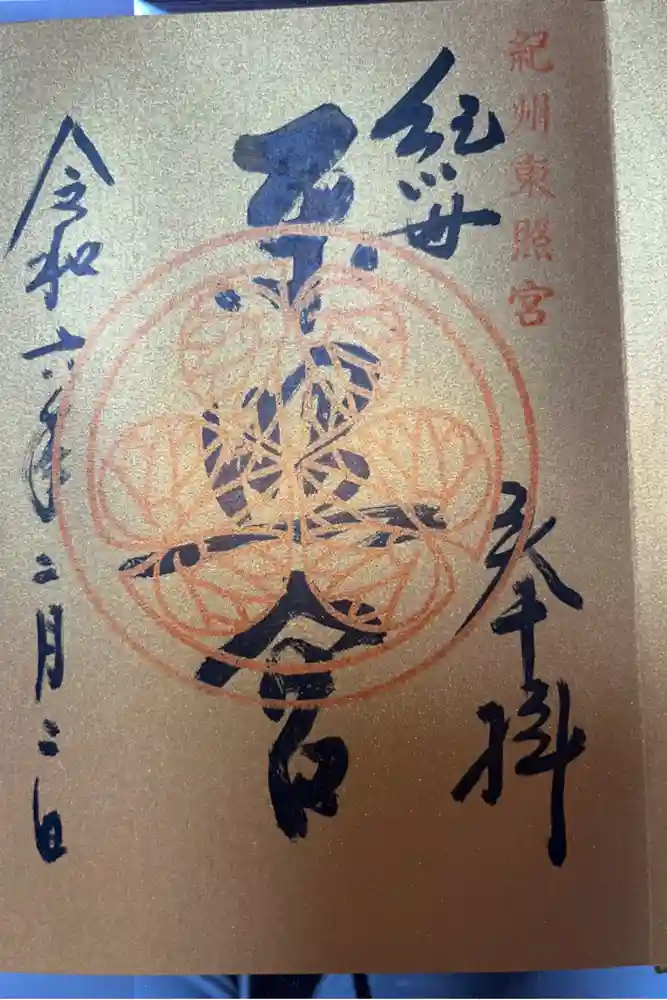 紀州東照宮
紀州
奉拝
東照宮
令和六年二月二日